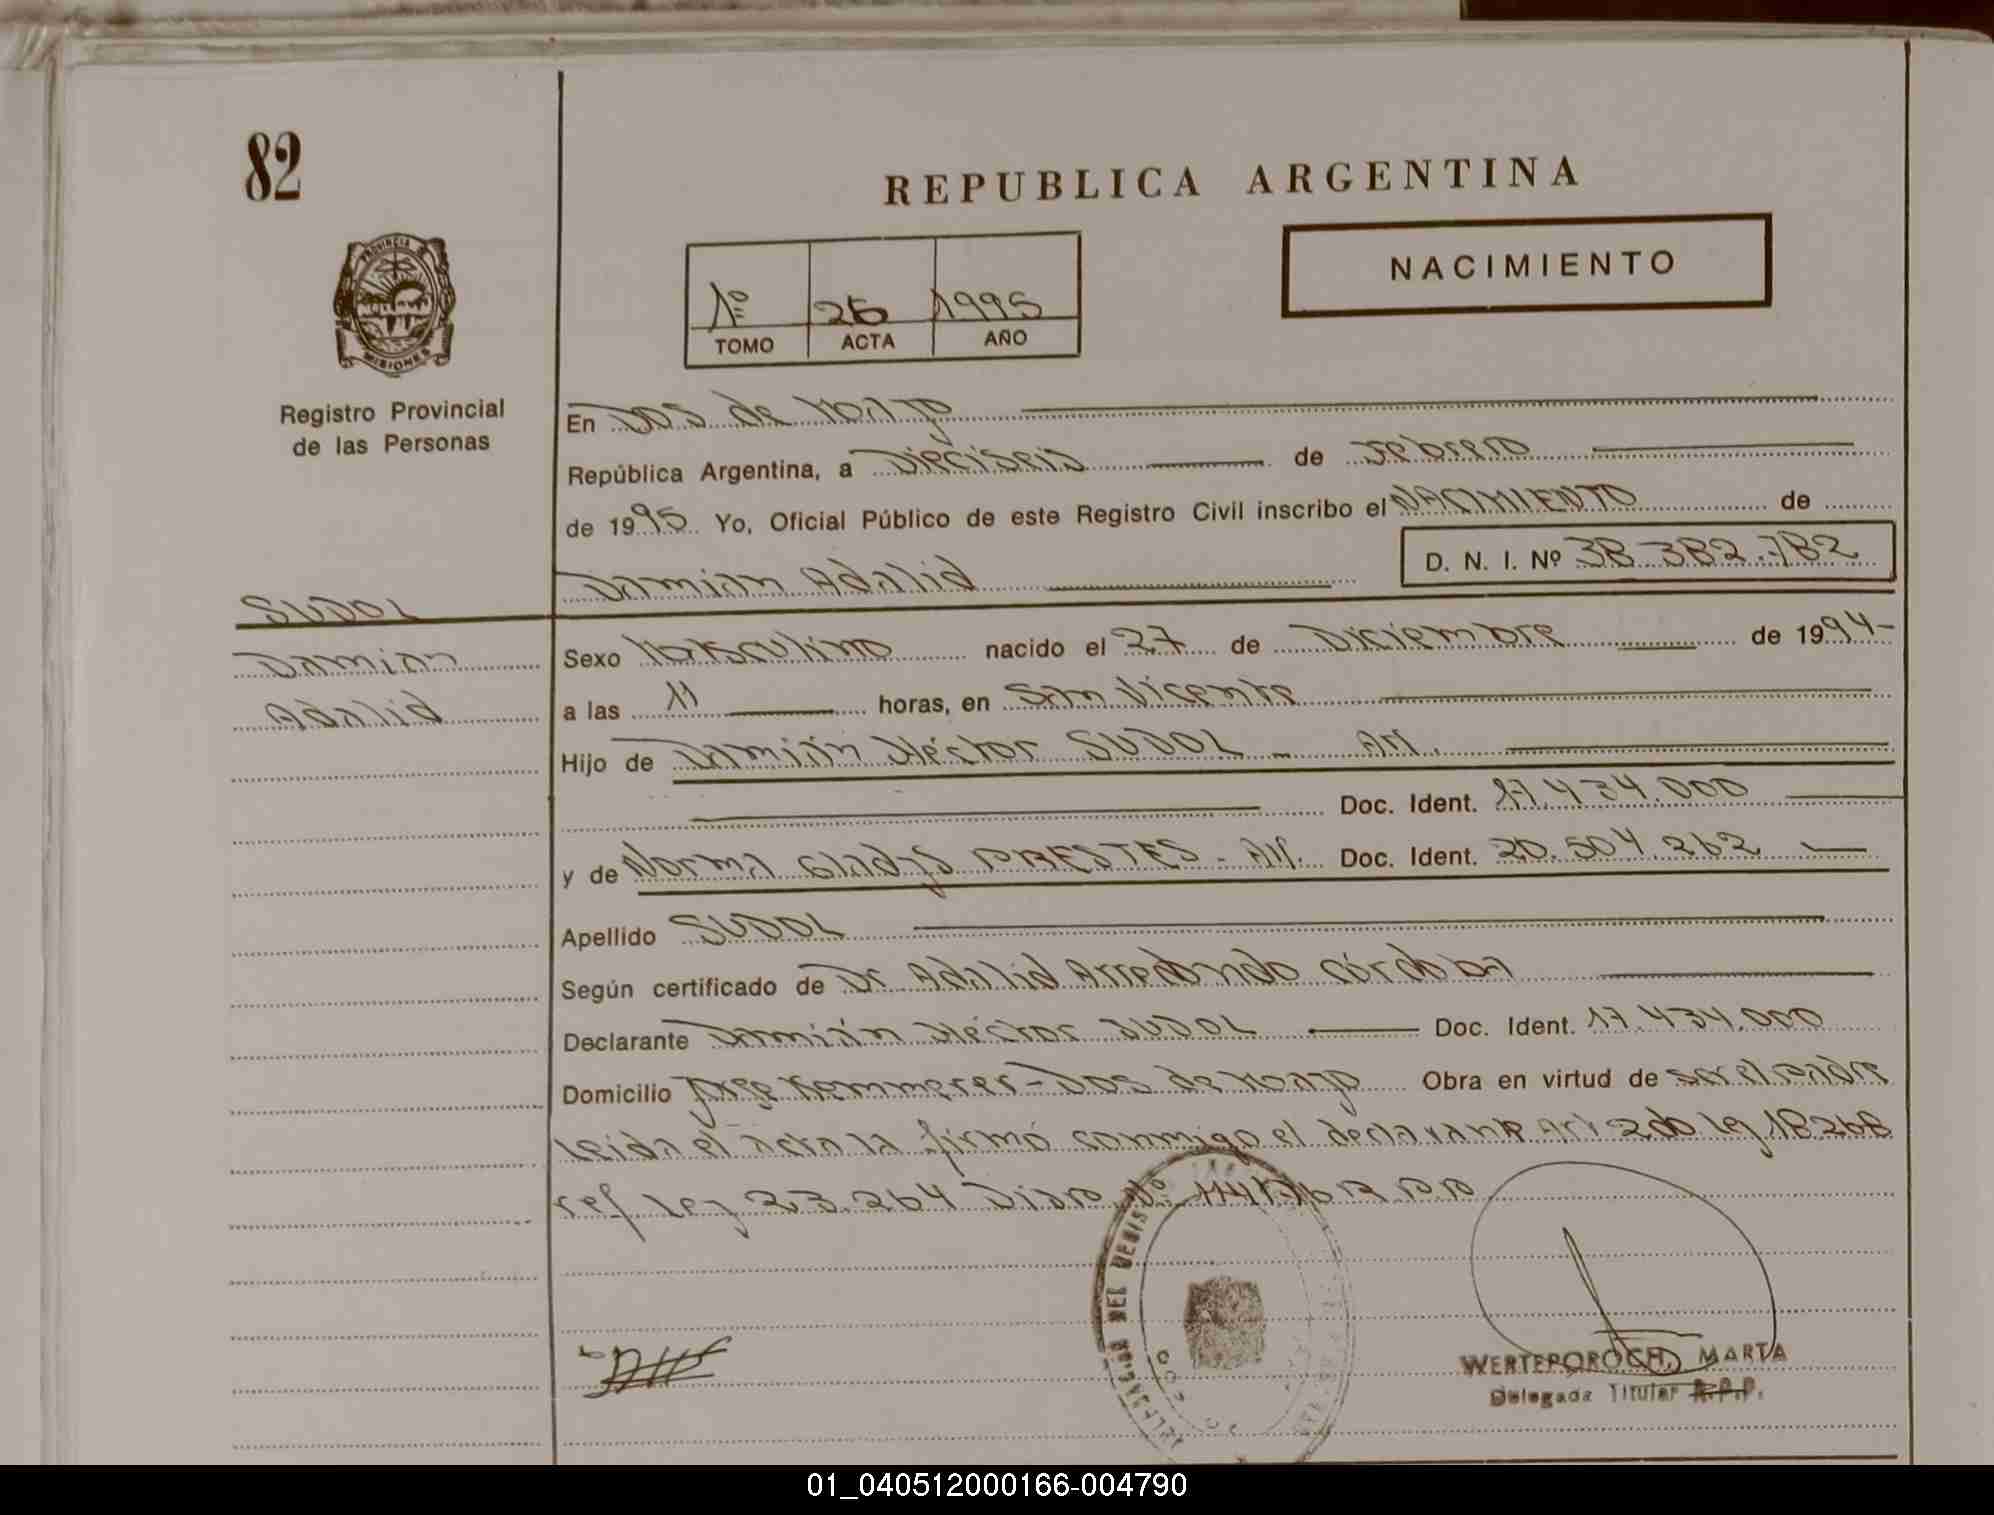 82
REPUBLICA ARGENTINA
NACIMIENTO
1º 26 1995
TOMO ACTA AÑO
PROVINCIA DE
MISIONES
Registro Provincial
de las Personas
En Dos de Mayo
República Argentina, a Dieciseis de Febrero
de 1995 Yo, Oficial Público de este Registro Civil inscribo el NACIMIENTO de
Damian Adalid D. N. I. Nº 38.382.782
SUDOL
Damian
Adalid
Sexo Masculino nacido el 27 de Diciembre de 1994-
a las 11 horas, en San Vicente
Hijo de Damián Héctor SUDOL - Arg.
Doc. Ident. 17.434.000
y de Norma Gladys PRESTES - Arg. Doc. Ident. 20.504.262
Apellido SUDOL
Según certificado de Dr Adalid Arredondo Córdoba
Declarante Damián Héctor SUDOL Doc. Ident. 17.434.000
Domicilio Jorge Kemmerer - Dos de Mayo Obra en virtud de ser el padre
Leida el Acta la firmó conmigo el declarante Art 2do Ley 18268
ref Ley 23.264 Disp. Nº
DEL REGISTRO
WERTEPOROCH, MARTA
Delegada Titular R.P.P.
01_040512000166-004790